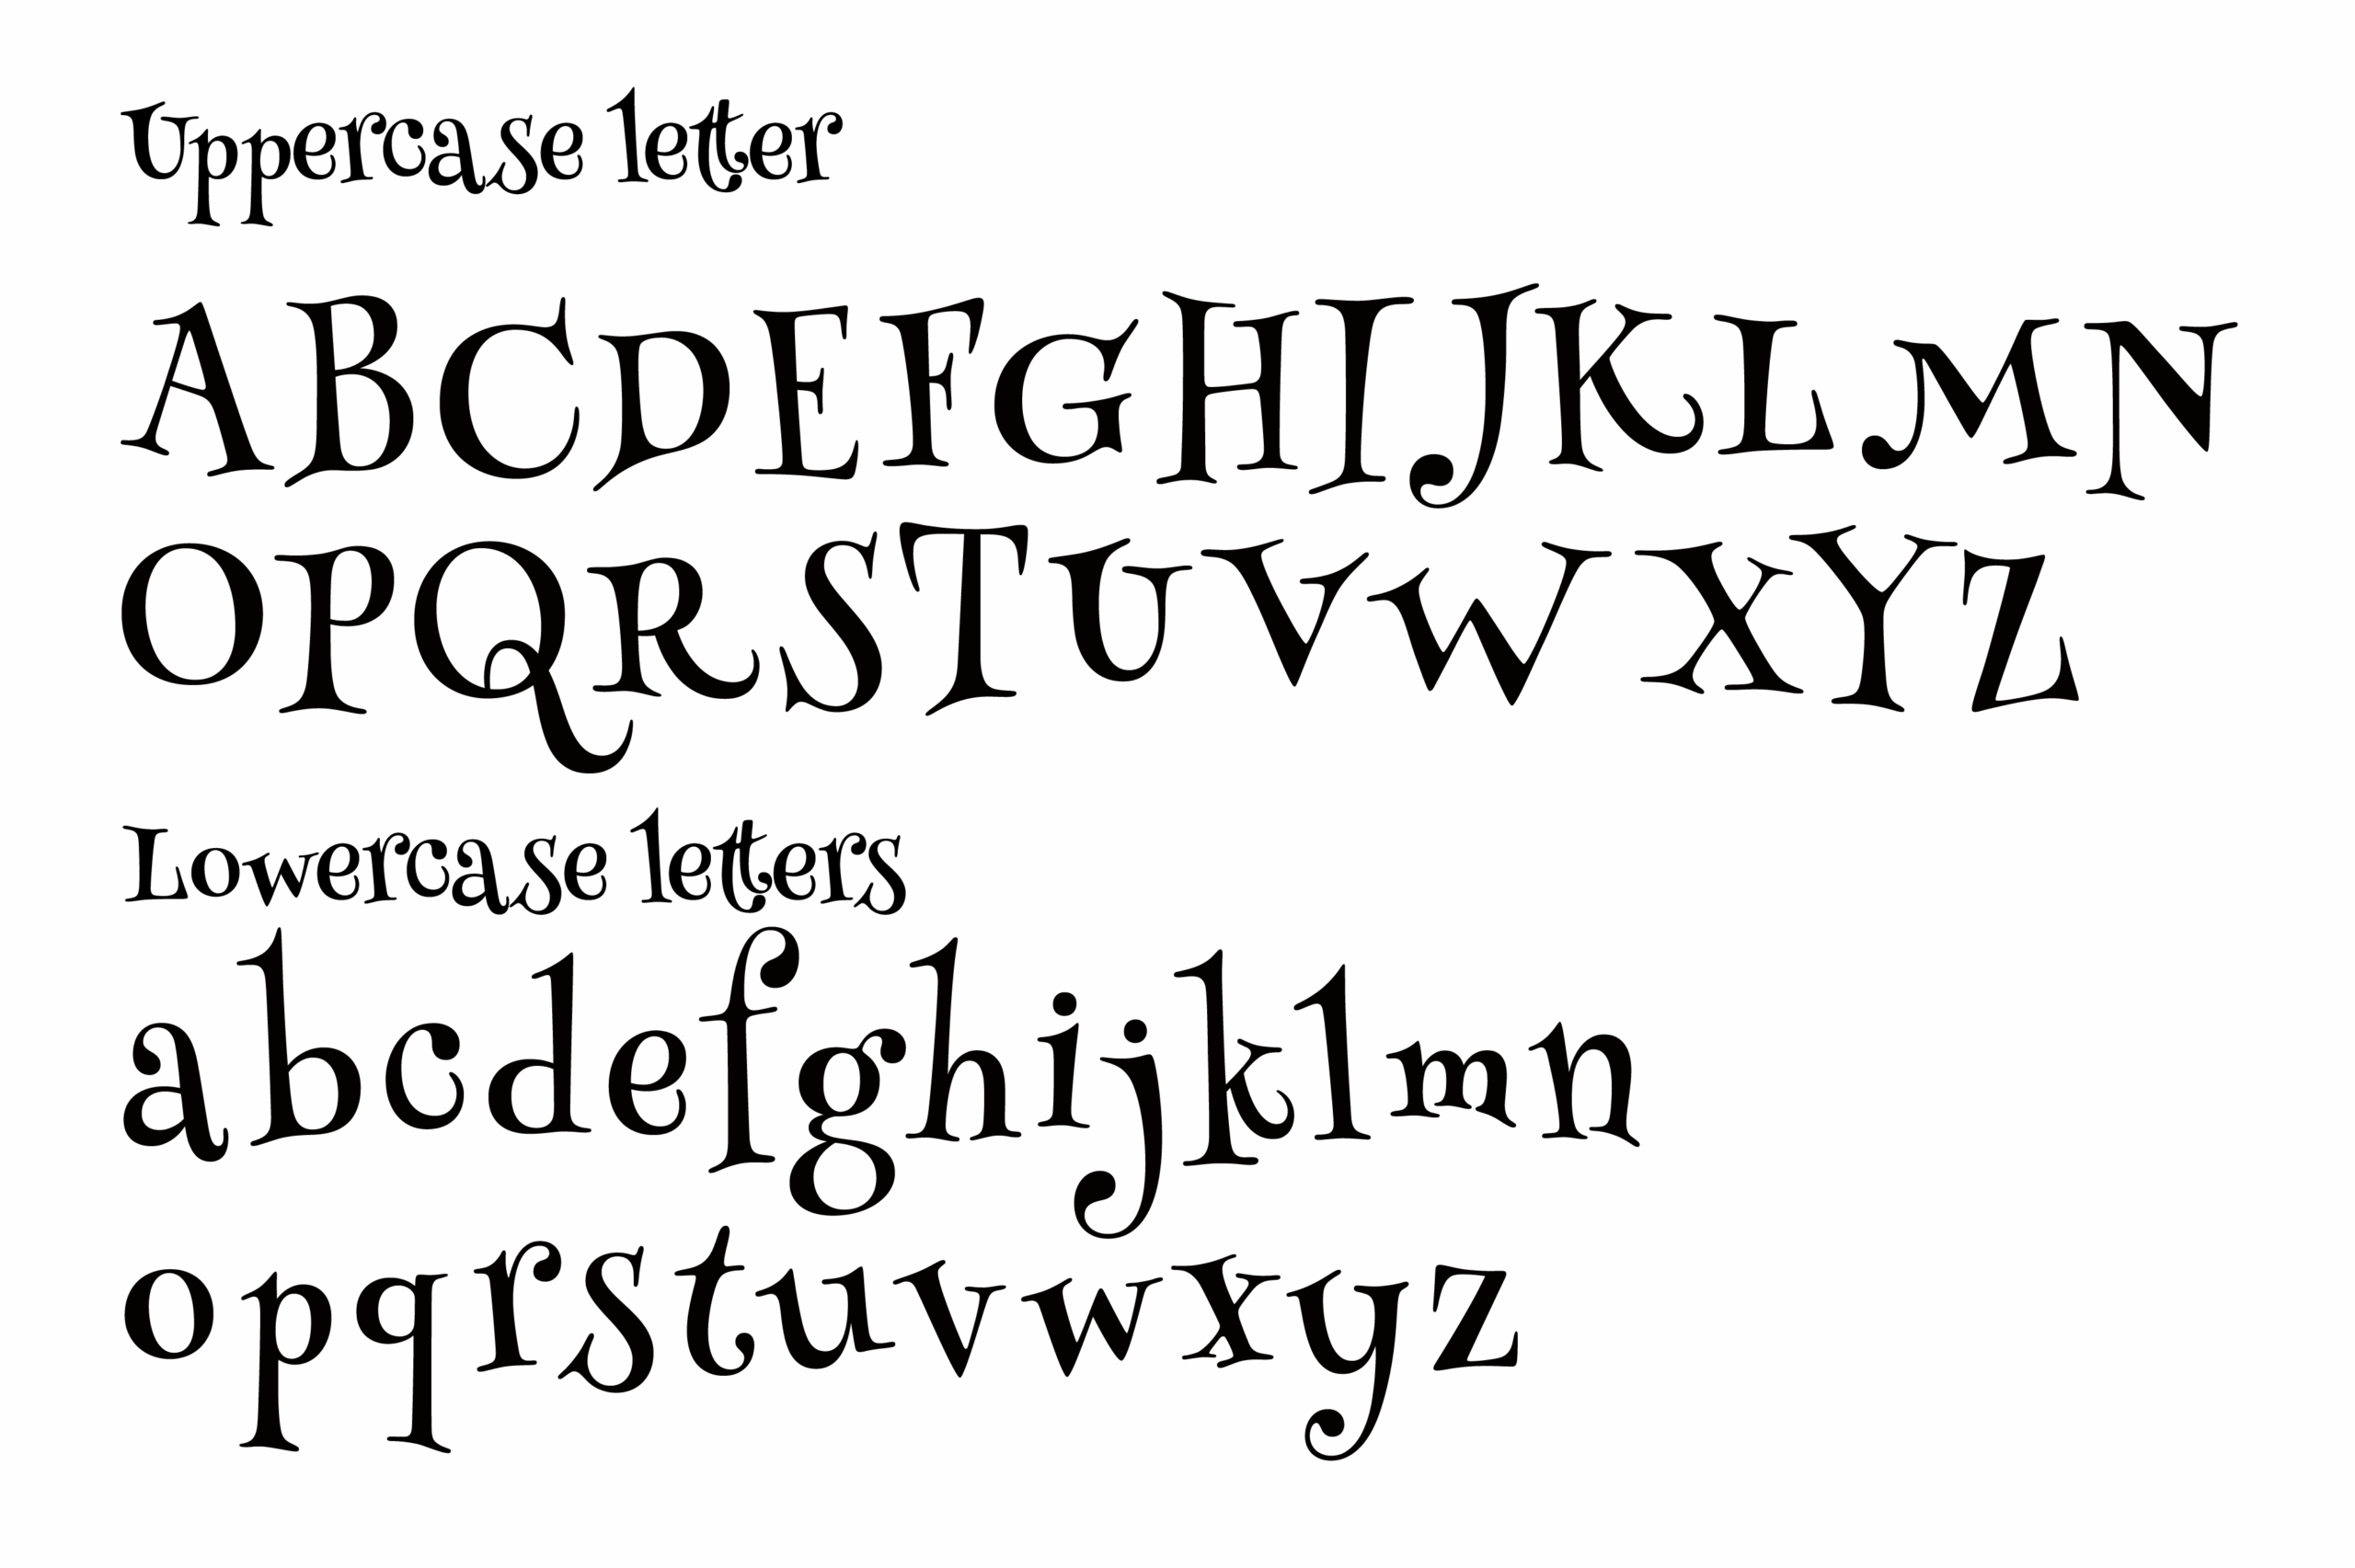 Uppercase letter
ABCDEFGHIJKLMN
OPQRSTUVWXYZ
Lowercase letters
abcdefghijklmn
opqrstuvwxyz